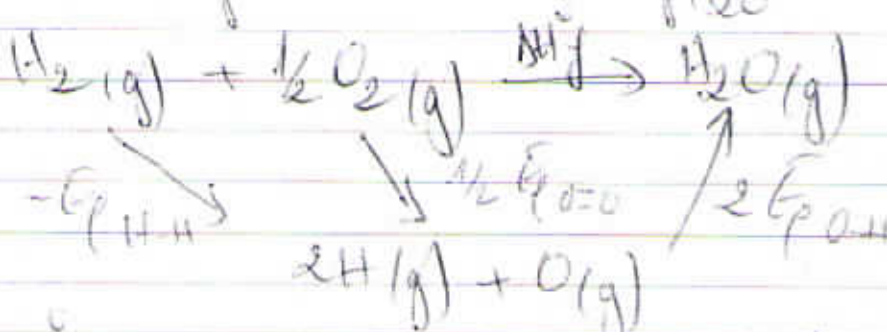 H2(g) + 1/2 O2(g) ΔH°f → H2O(g)
-Eℓ H-H 1/2 Eℓ O=O 2 Eℓ O-H
2H(g) + O(g)